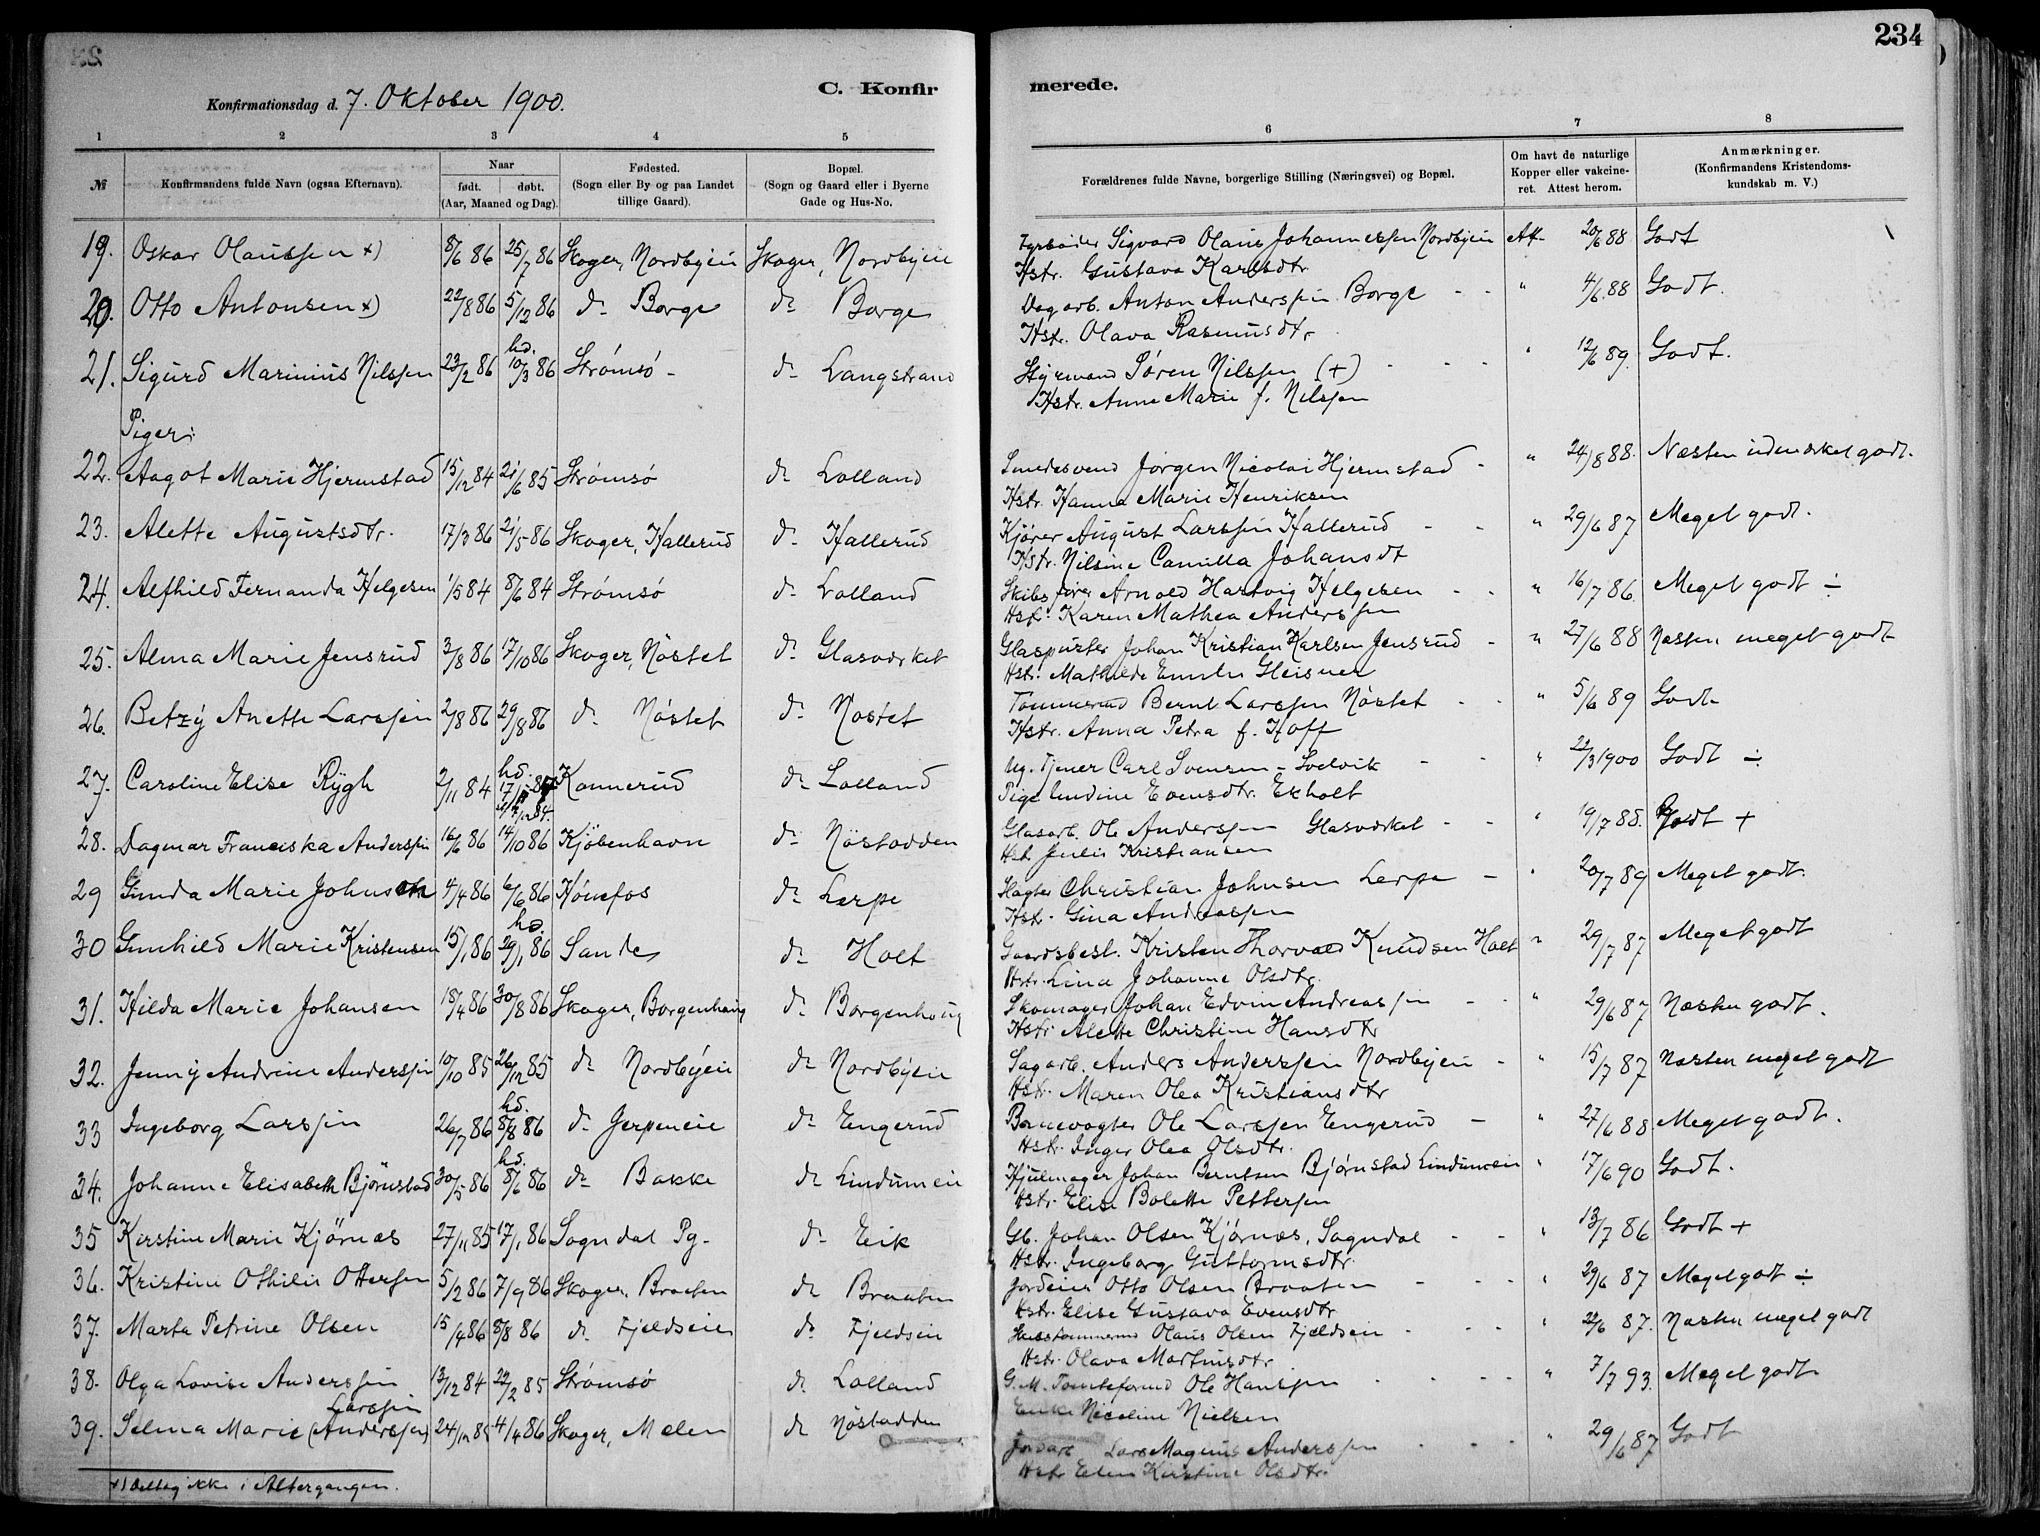 234
Konfirmationsdag d. 7. Oktober 1900.
C. Konfirmerede.
1 2 3 4 5 6 7 8
№ Konfirmandens fulde Navn (ogsaa Efternavn). Naar født. døbt. (Aar, Maaned og Dag). Fødested. (Sogn eller By og paa Landet tillige Gaard). Bopæl. (Sogn og Gaard eller i Byerne Gade og Hus-No. Forældrenes fulde Navne, borgerlige Stilling (Næringsvei) og Bopæl. Om havt de naturlige Kopper eller vakcineret. Attest herom. Anmærkninger. (Konfirmandens Kristendomskundskab m. V.)
19. Oskar Olaussen x) 8/6 86 25/7 86 Skoger, Nordbyeie Skoger, Nordbyeie Fyrbøder Sigvard Olaus Johannessen Nordbyeie Att. 20/6 88 Godt
Hstr. Gustava Karlsdtr
20. Otto Antonsen x) 22/8 86 5/12 86 do Borge do Borge Dagarb. Anton Anderssen Borge " 4/6 88 Godt.
Hstr. Olava Rasmusdtr
21. Sigurd Marinius Nilssen 23/2 86 hd. 10/3 86 Strømsø - do Langstrand Styrmand Søren Nilssen (+) " 12/6 89. Godt.
Hstr. Anne Marie f. Nilssen
Piger:
22. Aagot Marie Hjermstad 15/12 84 21/6 85 Strømsø do Lolland Smedesvend Jørgen Nicolai Hjermstad " 24/8 88. Næsten udmerket godt.
Hstr. Hanna Marie Henriksen
23. Alette Augustsdtr. 17/3 86 21/5 86 Skoger, Hallerud do Hallerud Kjører August Larssen Hallerud " 29/6 87 Meget godt.
Hstr. Nilsine Camilla Johansdt
24. Alfhild Fernanda Helgesen 1/5 84 8/6 84 Strømsø do Lolland Skibsfører Arnold Hartvig Helgesen " 16/7 86. Meget godt ÷
Hstr. Karen Mathea Anderssen
25. Alma Marie Jensrud 3/8 86 17/10 86 Skoger, Nøstet do Glasværket Glaspuster Johan Kristian Karlsen Jensrud " 27/6 88 Næsten meget godt
Hstr. Mathilde Emelie Gleisner
26. Betzy Anette Larssen 2/8 86 29/8 86 do Nøstet do Nøstet Tømmermd Bernt Larssen Nøstet " 5/6 89 Godt
Hstr. Anna Petra f. Hoff
27. Caroline Elise Rygh 2/11 84 hd. Konnerud do Lolland Ug. Tjener Carl Svensen - Svelvik " 22/3 1900 Godt ÷
Pige Undine Evensdtr. Ekholt
28. Dagmar Franciska Anderssen 16/6 86 14/10 86 Kjøbenhavn do Nøstodden Glasarb. Ole Anderssen Glasværket " 19/7 88. Godt +
Hstr. Julie Kristiansen
29 Gunda Marie Johnsen 4/4 86 6/6 86 Hønefos do Lerpe Slagter Christian Johnsen Lerpe " 20/7 89 Meget godt.
Hstr. Gina Andreassen
30 Gunhild Marie Kristensen 15/1 86 hd. 29/1 86 Sande do Holt Gaardsbest. Kristen Thorvald Knudsen Holt " 29/7 87 Meget godt
Hstr. Lina Johanne Olsdtr.
31. Hilda Marie Johansen 18/4 86 30/8 86 Skoger, Borgenhaug do Borgenhoug Skomager Johan Edvin Andreassen " 29/6 87 Næsten godt.
Hstr Alette Christine Hansdtr
32. Jenny Andrine Anderssen 10/10 85 26/12 85 do Nordbyeie do Nordbyeie Sagarb. Anders Anderssen Nordbyeie " 15/7 87 Næsten meget godt
Hstr. Maren Olea Kristiansdtr
33 Ingeborg Larssen 26/7 86 hd. 8/8 86 do Jerpeneie do Engerud Banevogter Ole Larssen Engerud " 27/6 88. Meget godt.
Hstr. Inger Olea Olsdtr.
34. Johanne Elisabeth Bjørnstad 30/5 86 hd. 8/6 86 do Bakke do Lindumeie Hjulmager Johan Berntsen Bjørnstad Lindumeie " 17/6 90 Godt.
Hstr. Elise Bolette Pettersen
35 Kirstine Marie Kjørnæs 27/11 85 17/1 86 Sogndal Pg. do Eik Gb. Johan Olsen Kjørnæs, Sogndal " 13/7 86 Godt +
Hstr. Ingeborg Guttormsdtr.
36. Kristine Othilie Ottersen 5/2 86 7/9 86 Skoger, Braaten do Braaten Jordeier Otto Olsen Braaten " 29/6 87 Meget godt ÷
Hstr. Elise Gustava Evensdtr
37. Marta Petrine Olsen 15/4 86 8/8 86 do Fjeldseie do Fjeldseie Hustømmermd Olaus Olsen Fjeldseie " 22/6 87. Næsten meget godt
Hstr. Olava Martinsdtr
38. Olga Lovise Anderssen 13/12 84 22/2 85 Strømsø do Lolland G. M. Tomteformd Ole Hanssen " 7/7 93. Meget godt
Enke Nicoline Nielsen
39. Selma Marie Larssen (Anderssen) 24/12 85 4/4 86 Skoger, Melen do Nøstodden Jordarb Lars Magnus Anderssen " 29/6 87 Godt
Hstr Elen Kirstine Olsdtr.
x) Deltog ikke i Altergangen.